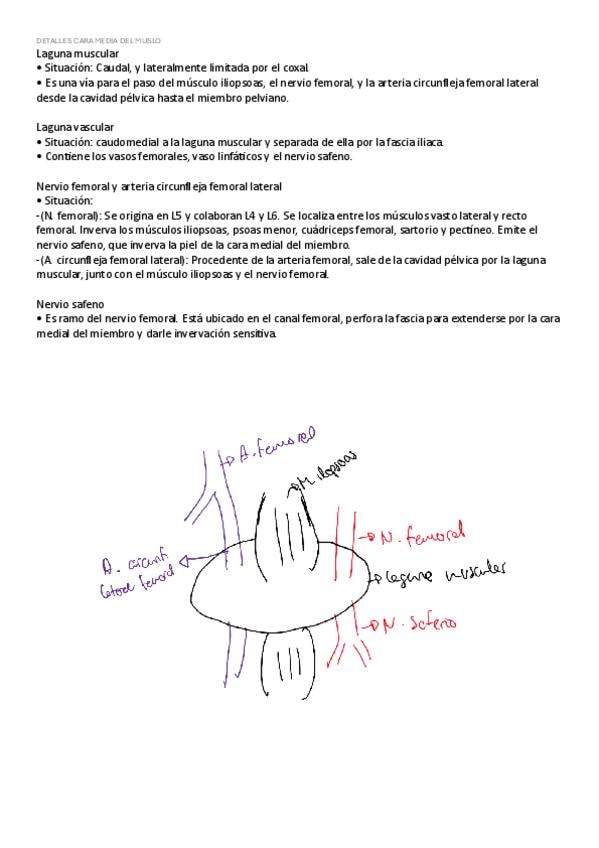 DETALLES CARA MEDIA DEL MUSLO
Laguna muscular
• Situación: Caudal, y lateralmente limitada por el coxal.
• Es una vía para el paso del músculo iliopsoas, el nervio femoral, y la arteria circunfleja femoral lateral
desde la cavidad pélvica hasta el miembro pelviano.
Laguna vascular
• Situación: caudomedial a la laguna muscular y separada de ella por la fascia iliaca.
• Contiene los vasos femorales, vaso linfáticos y el nervio safeno.
Nervio femoral y arteria circunfleja femoral lateral
• Situación:
-(N. femoral): Se origina en L5 y colaboran L4 y L6. Se localiza entre los músculos vasto lateral y recto
femoral. Inverva los músculos iliopsoas, psoas menor, cuádriceps femoral, sartorio y pectíneo. Emite el
nervio safeno, que inverva la piel de la cara medial del miembro.
-(A. circunfleja femoral lateral): Procedente de la arteria femoral, sale de la cavidad pélvica por la laguna
muscular, junto con el músculo iliopsoas y el nervio femoral.
Nervio safeno
• Es ramo del nervio femoral. Está ubicado en el canal femoral, perfora la fascia para extenderse por la cara
medial del miembro y darle invervación sensitiva.
A. femoral
M. ilopsoas
N. femoral
A. circunf.
lateral femoral
laguna muscular
N. Safeno